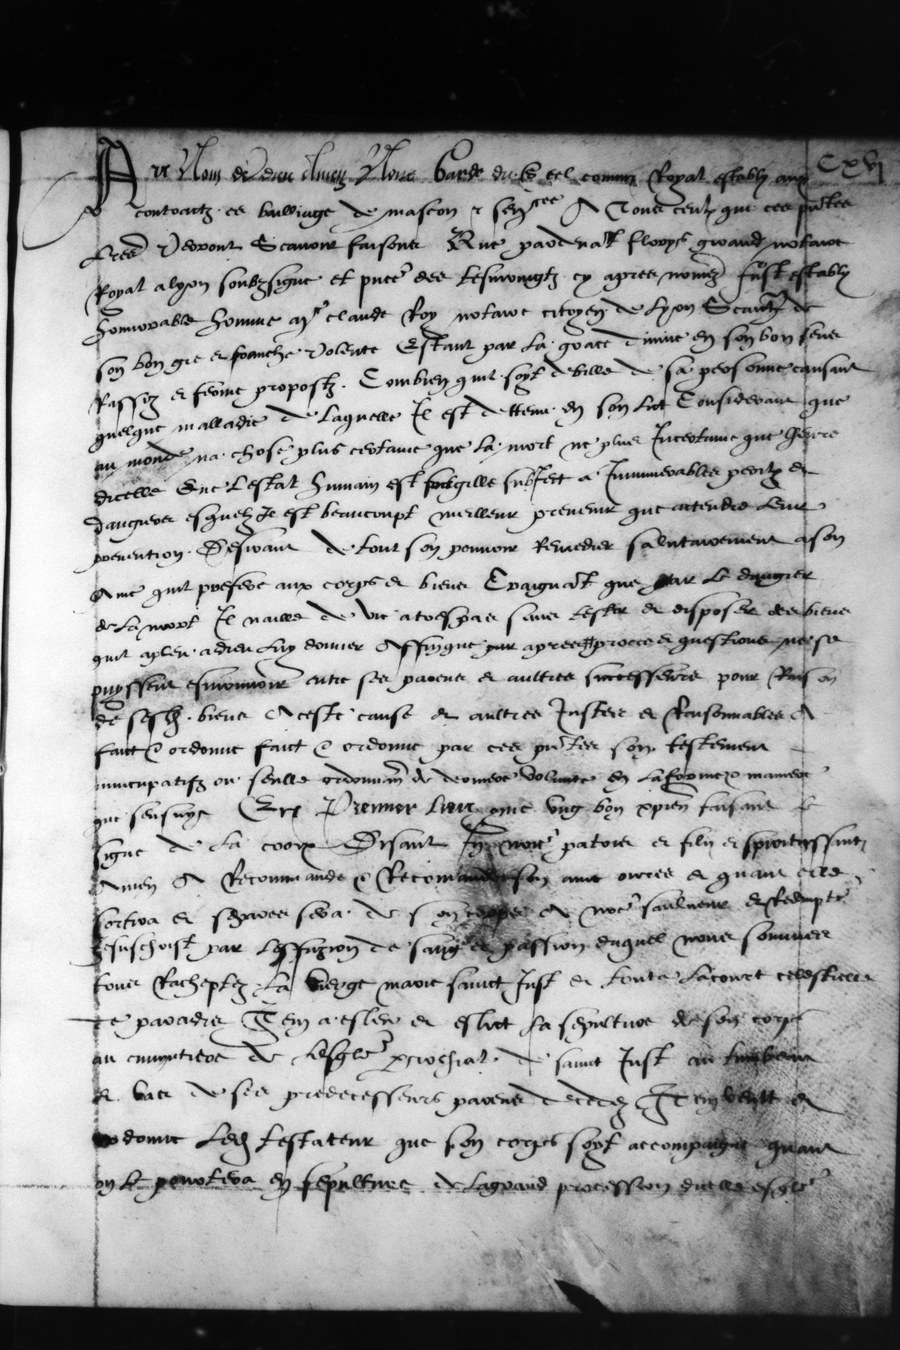 Au Nom de Dieu Amen Nous Garde du seel commun Royal estably aux CXVI
contractz es bailliage de mascon & senes^cee A Tous ceulx que ces p^ntes
L^res Verront Scavoir faisons Que pardevant notaire
Royal a lyon soubzsigne et p^nce des tesmoingtz cy apres nommez fust estably
honnorable homme m^e claude Roy notaire citoyen de Lyon Scaichant de
son bon gre et franche volente Estant par la grace divine en son bon sens
Rassiz et ferme propostz Combien quil soyt debille de sa personne causant
quelque malladie de laquelle Il est detenu en son lict Considerant que
au monde na chose plus certaine que la mort ne plus Incertaine que lheure
dicelle Que Lestat humain est fragille subiect a Innumerables perilz et
dangiers esquelz Il est beaucoupt meilleur prevenir que attendre leur
prevention Desirant de tout son pouvoir Remedier salutairement a son
Ame quil prefere aux corps et biens Craignant que par le dangier
de la mort Il naille de vie a trespas sans tester et disposer des biens
quil a pleu a dieu luy donner Affin que par apres proces et questions ne se
puyssent esmouvoir entre ses parens et aultres successeurs pour Raison
de sesd biens A ceste cause et aultres Justes et Raisonnables A
faict & ordonne faict & ordonne par ces p^ntes son testement
nuncupatifz ou seulle ordonnan^ce de derniere volunte en la forme & maniere
que sensuyt Et Premier lieu come ung bon xpien faisant le
signe de La croix Disant In no^e patris et filii et spiritussancti
Amen A Recommande & Recommande son ame ores et quant elle
sortira et separee sera de son corps A no^e saulveur et Redempte^r
Jesuschrist par Leffuzion de sang et passion duquel nous sommes
tous Racheptez La vierge marie sainct Just et toute la court celestielle
de paradis Item a esleu et eslict La sepulture de son corps
au cimintiere de Lesglise parrochial de sainct Just au tumbeau
et vas de ses predecesseurs parens decedez Item veult et
ordonne Led testateur que son corps soyt accompaigne quant
on le pourtera en sepulture de la grand procession duelle esglise